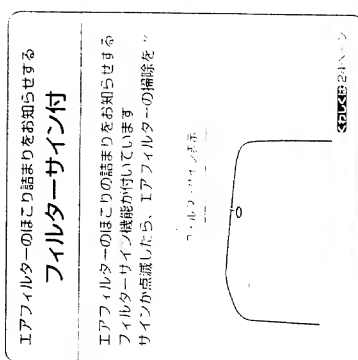 エアフィルターのほこり詰まりをお知らせする
フィルターサイン付
エアフィルターのほこりの詰まりをお知らせする
フィルターサイン機能が付いています
サインが点滅したら、エアフィルターの掃除を
フィルターサイン表示
くわしくは 24ページ